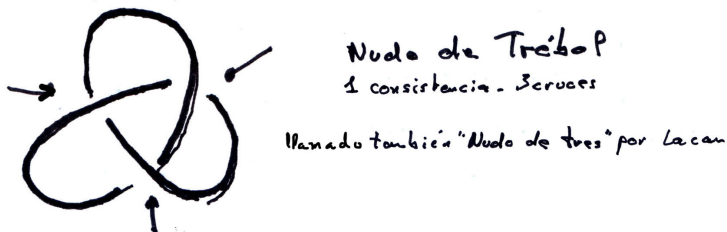 Nudo de Trébol
1 consistencia - 3 cruces
llamado también "Nudo de tres" por Lacan